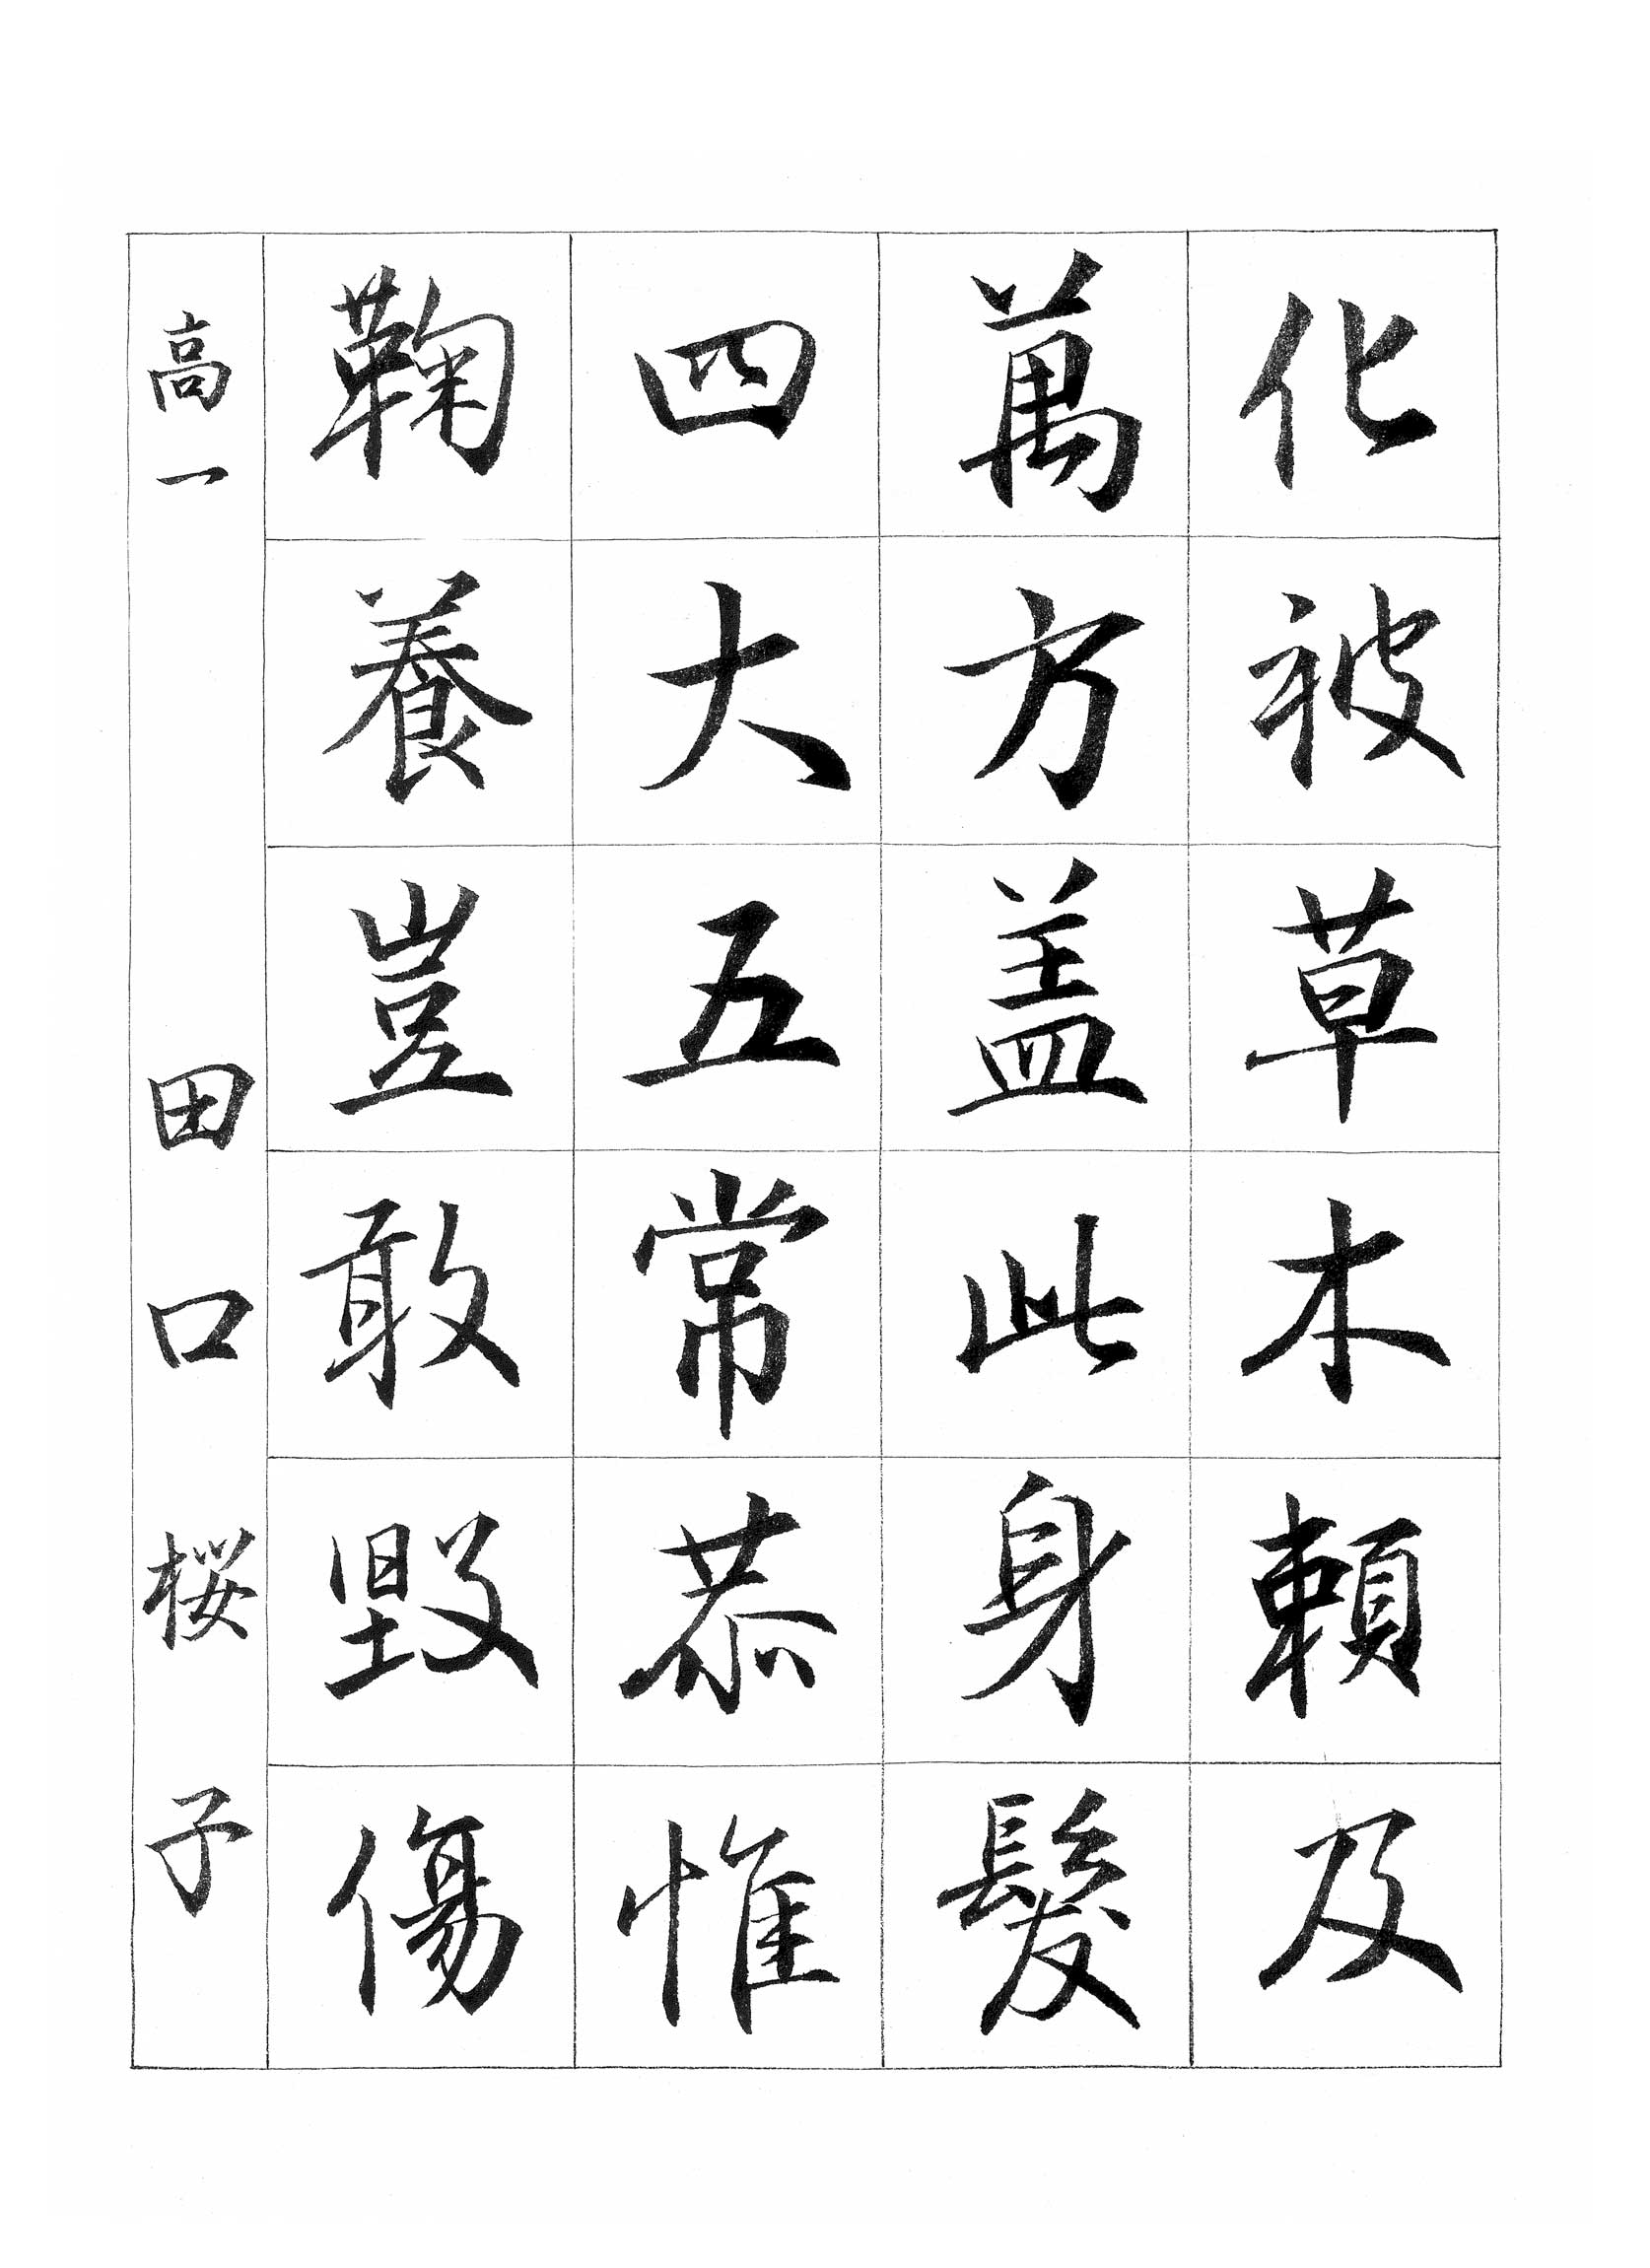 化被草木頼及
萬方盖此身髮
四大五常恭惟
鞠養豈敢毀傷
高一 田口桜子